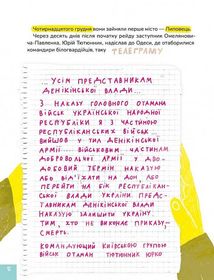 Чотирнадцятого грудня вони зайняли перше місто — Липовець.
Через десять днів після початку рейду заступник Омелянови-
ча-Павленка, Юрій Тютюнник, надіслав до Одеси, де отаборилися
командири білогвардійців, таку ТЕЛЕГРАМУ
...УСІМ ПРЕДСТАВНИКАМ
ДЕНІКІНСЬКОЇ ВЛАДИ...
З НАКАЗУ ГОЛОВНОГО ОТАМАНА
ВІЙСЬК УКРАЇНСЬКОЇ НАРОДНОЇ
РЕСПУБЛІКИ Я З ЧАСТИНОЮ
РЕСПУБЛІКАНСЬКИХ ВІЙСЬК
ВИЙШОВ У ТИЛ ДЕНІКІНСЬКОЇ
АРМІЇ. ВІЙСЬКОВИМ ЧАСТИНАМ
ДОБРОВОЛЬЧОЇ АРМІЇ У ДВО-
ДОБОВИЙ ТЕРМІН НАКАЗУЮ
АБО ВІД'ЇХАТИ НА ДОН, АБО
ПЕРЕЙТИ НА БІК РЕСПУБЛІКАН-
СЬКОЇ ВЛАДИ УКРАЇНИ. ПРЕДС-
ТАВНИКАМ ДЕНІКІНСЬКОЇ ВЛАДИ
НАКАЗУЮ ЗАЛИШИТИ УКРАЇНУ.
ТИМ, ХТО НЕ ВИКОНАЄ ПРИКАЗУ,—
СМЕРТЬ.
КОМАНДУЮЧИЙ КИЇВСЬКОЮ ГРУПОЮ
ВІЙСЬК ОТАМАН ТЮТЮННИК ЮРКО